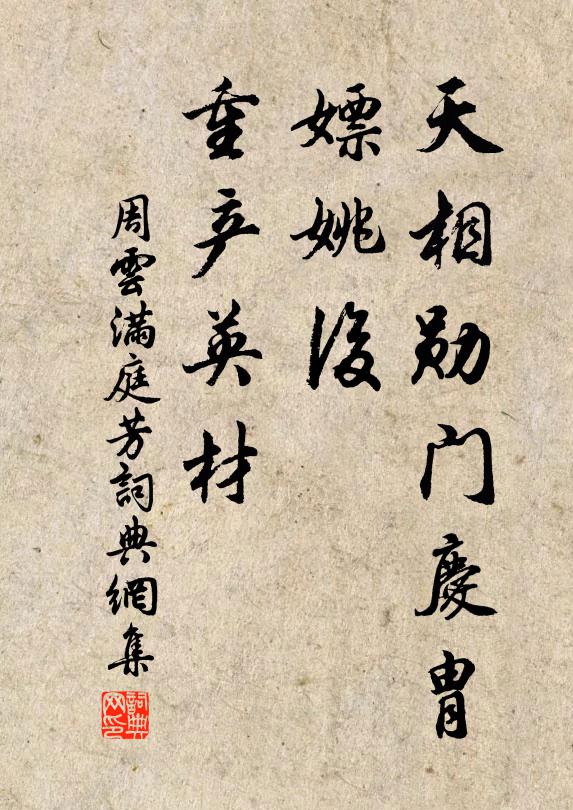 天相勋门慶胄
嫖姚後
重产英材
周雲滿庭芳詞典網集
詞典网印